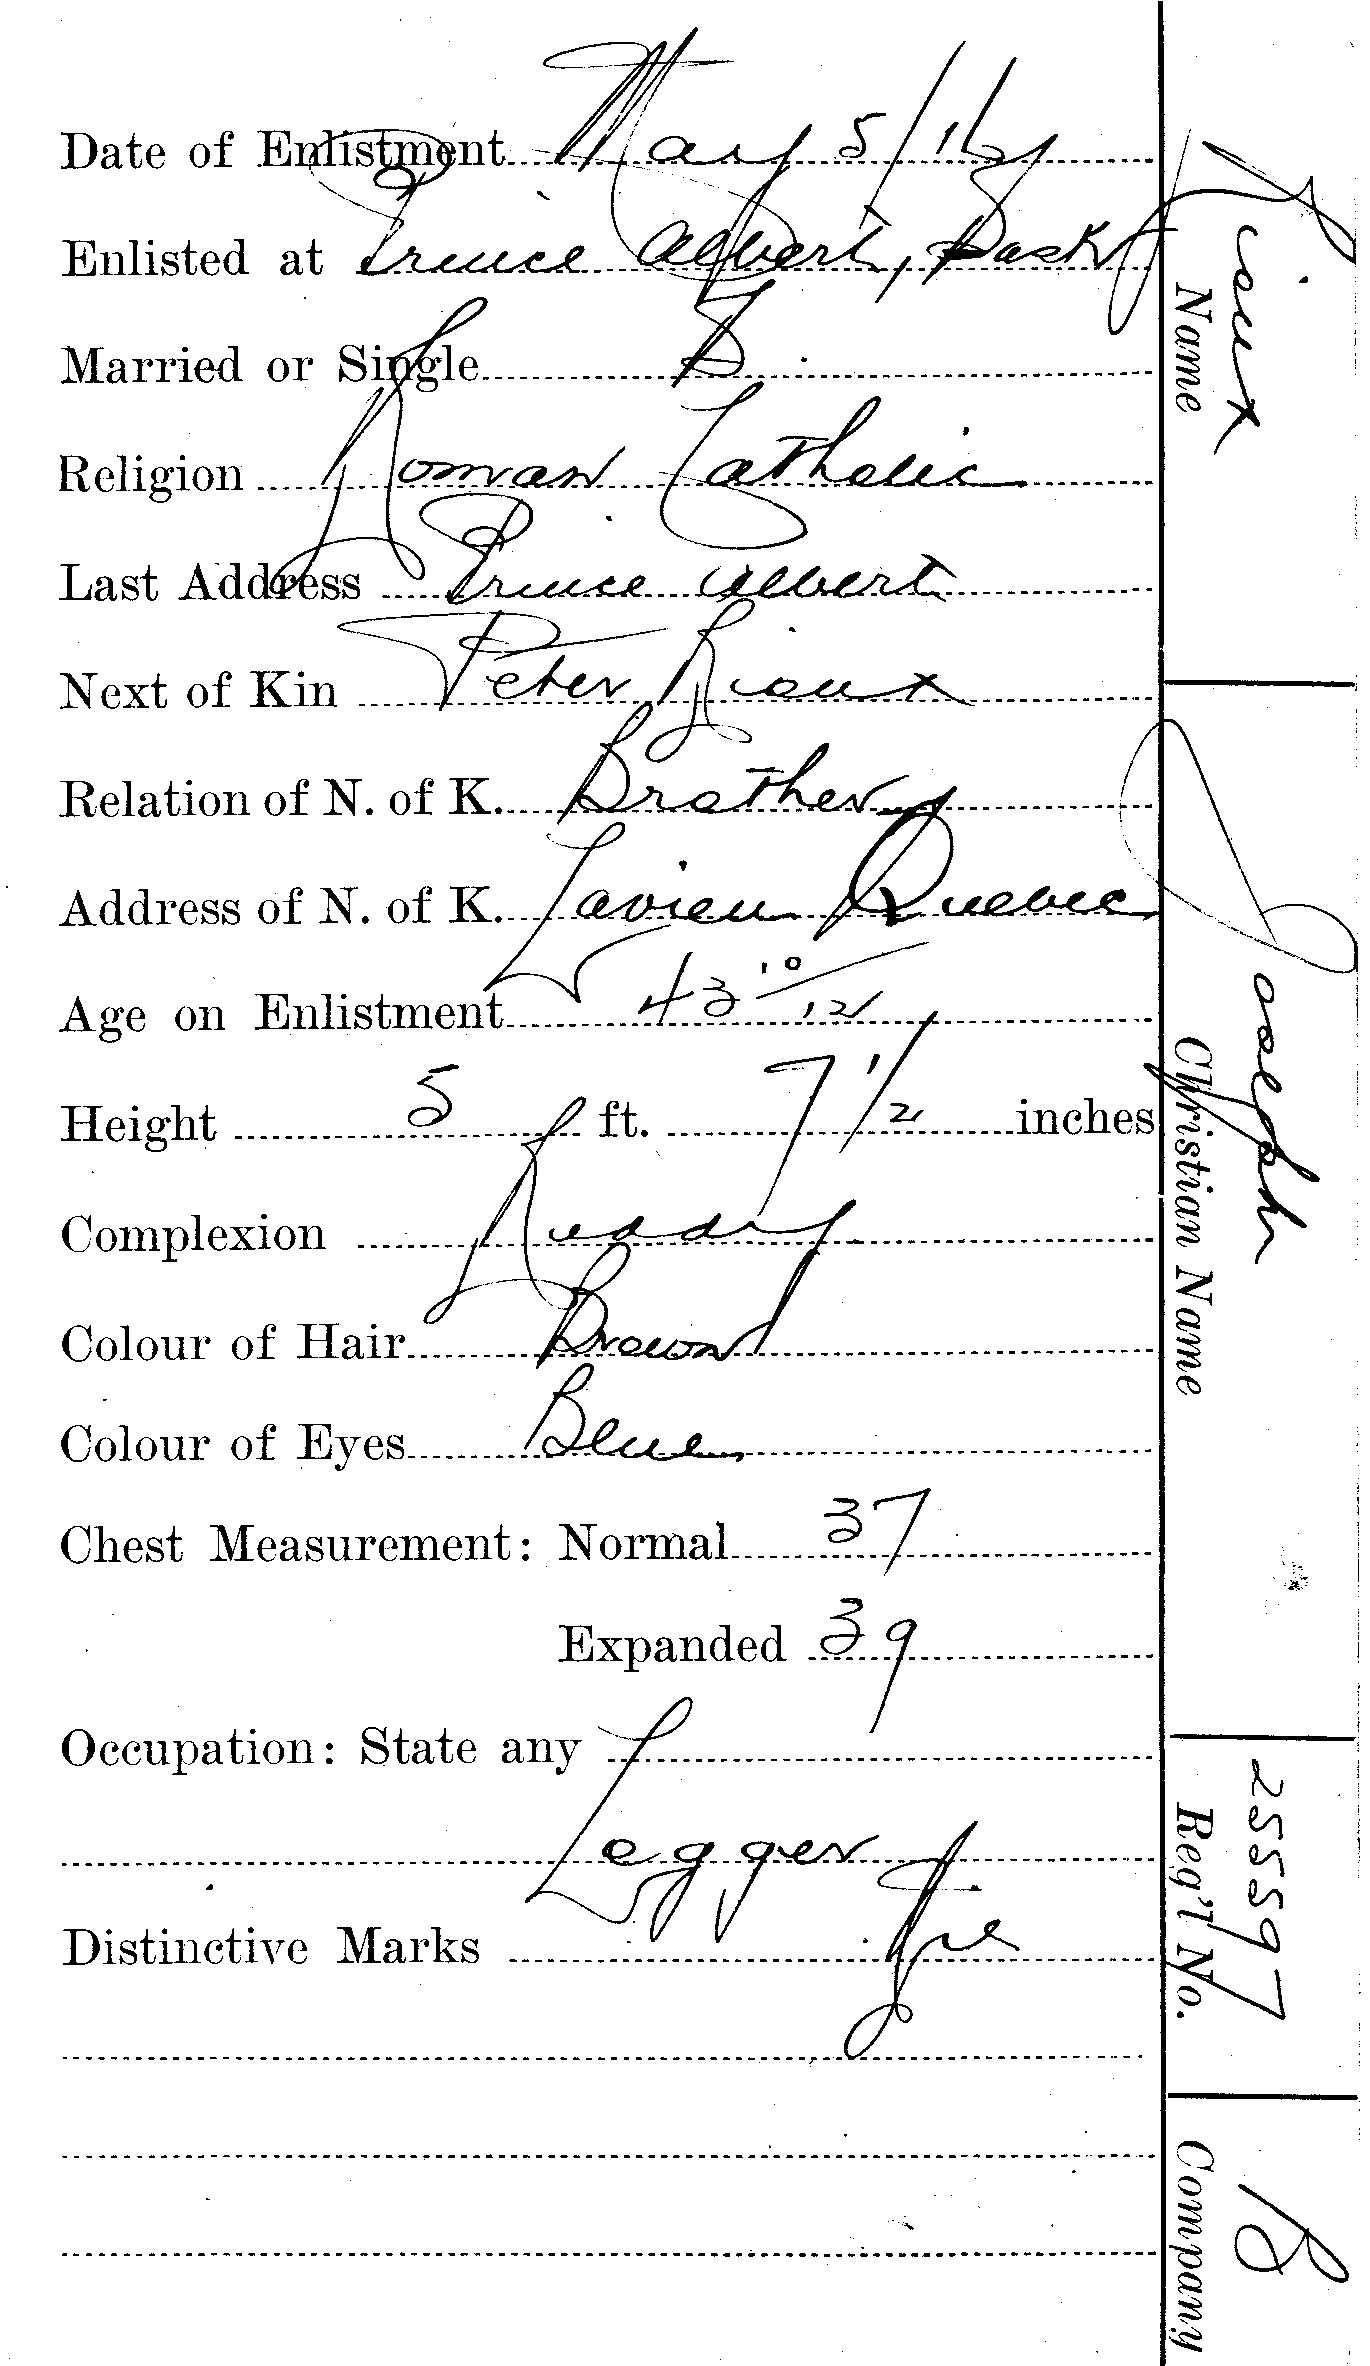 Date of Enlistment May 5/16
Enlisted at Prince Albert, Sask
Married or Single S
Religion Roman Catholic
Last Address Prince Albert
Next of Kin Peter Rioux
Relation of N. of K. Brother
Address of N. of K. Quebec
Age on Enlistment 43 10/12
Height 5 ft. 7 1/2 inches
Complexion Ruddy
Colour of Hair Brown
Colour of Eyes Blue
Chest Measurement: Normal 37
Expanded 39
Occupation: State any
Logger
Distinctive Marks
Rioux
Name
Joseph
Christian Name
255597
Reg'l No.
B
Company